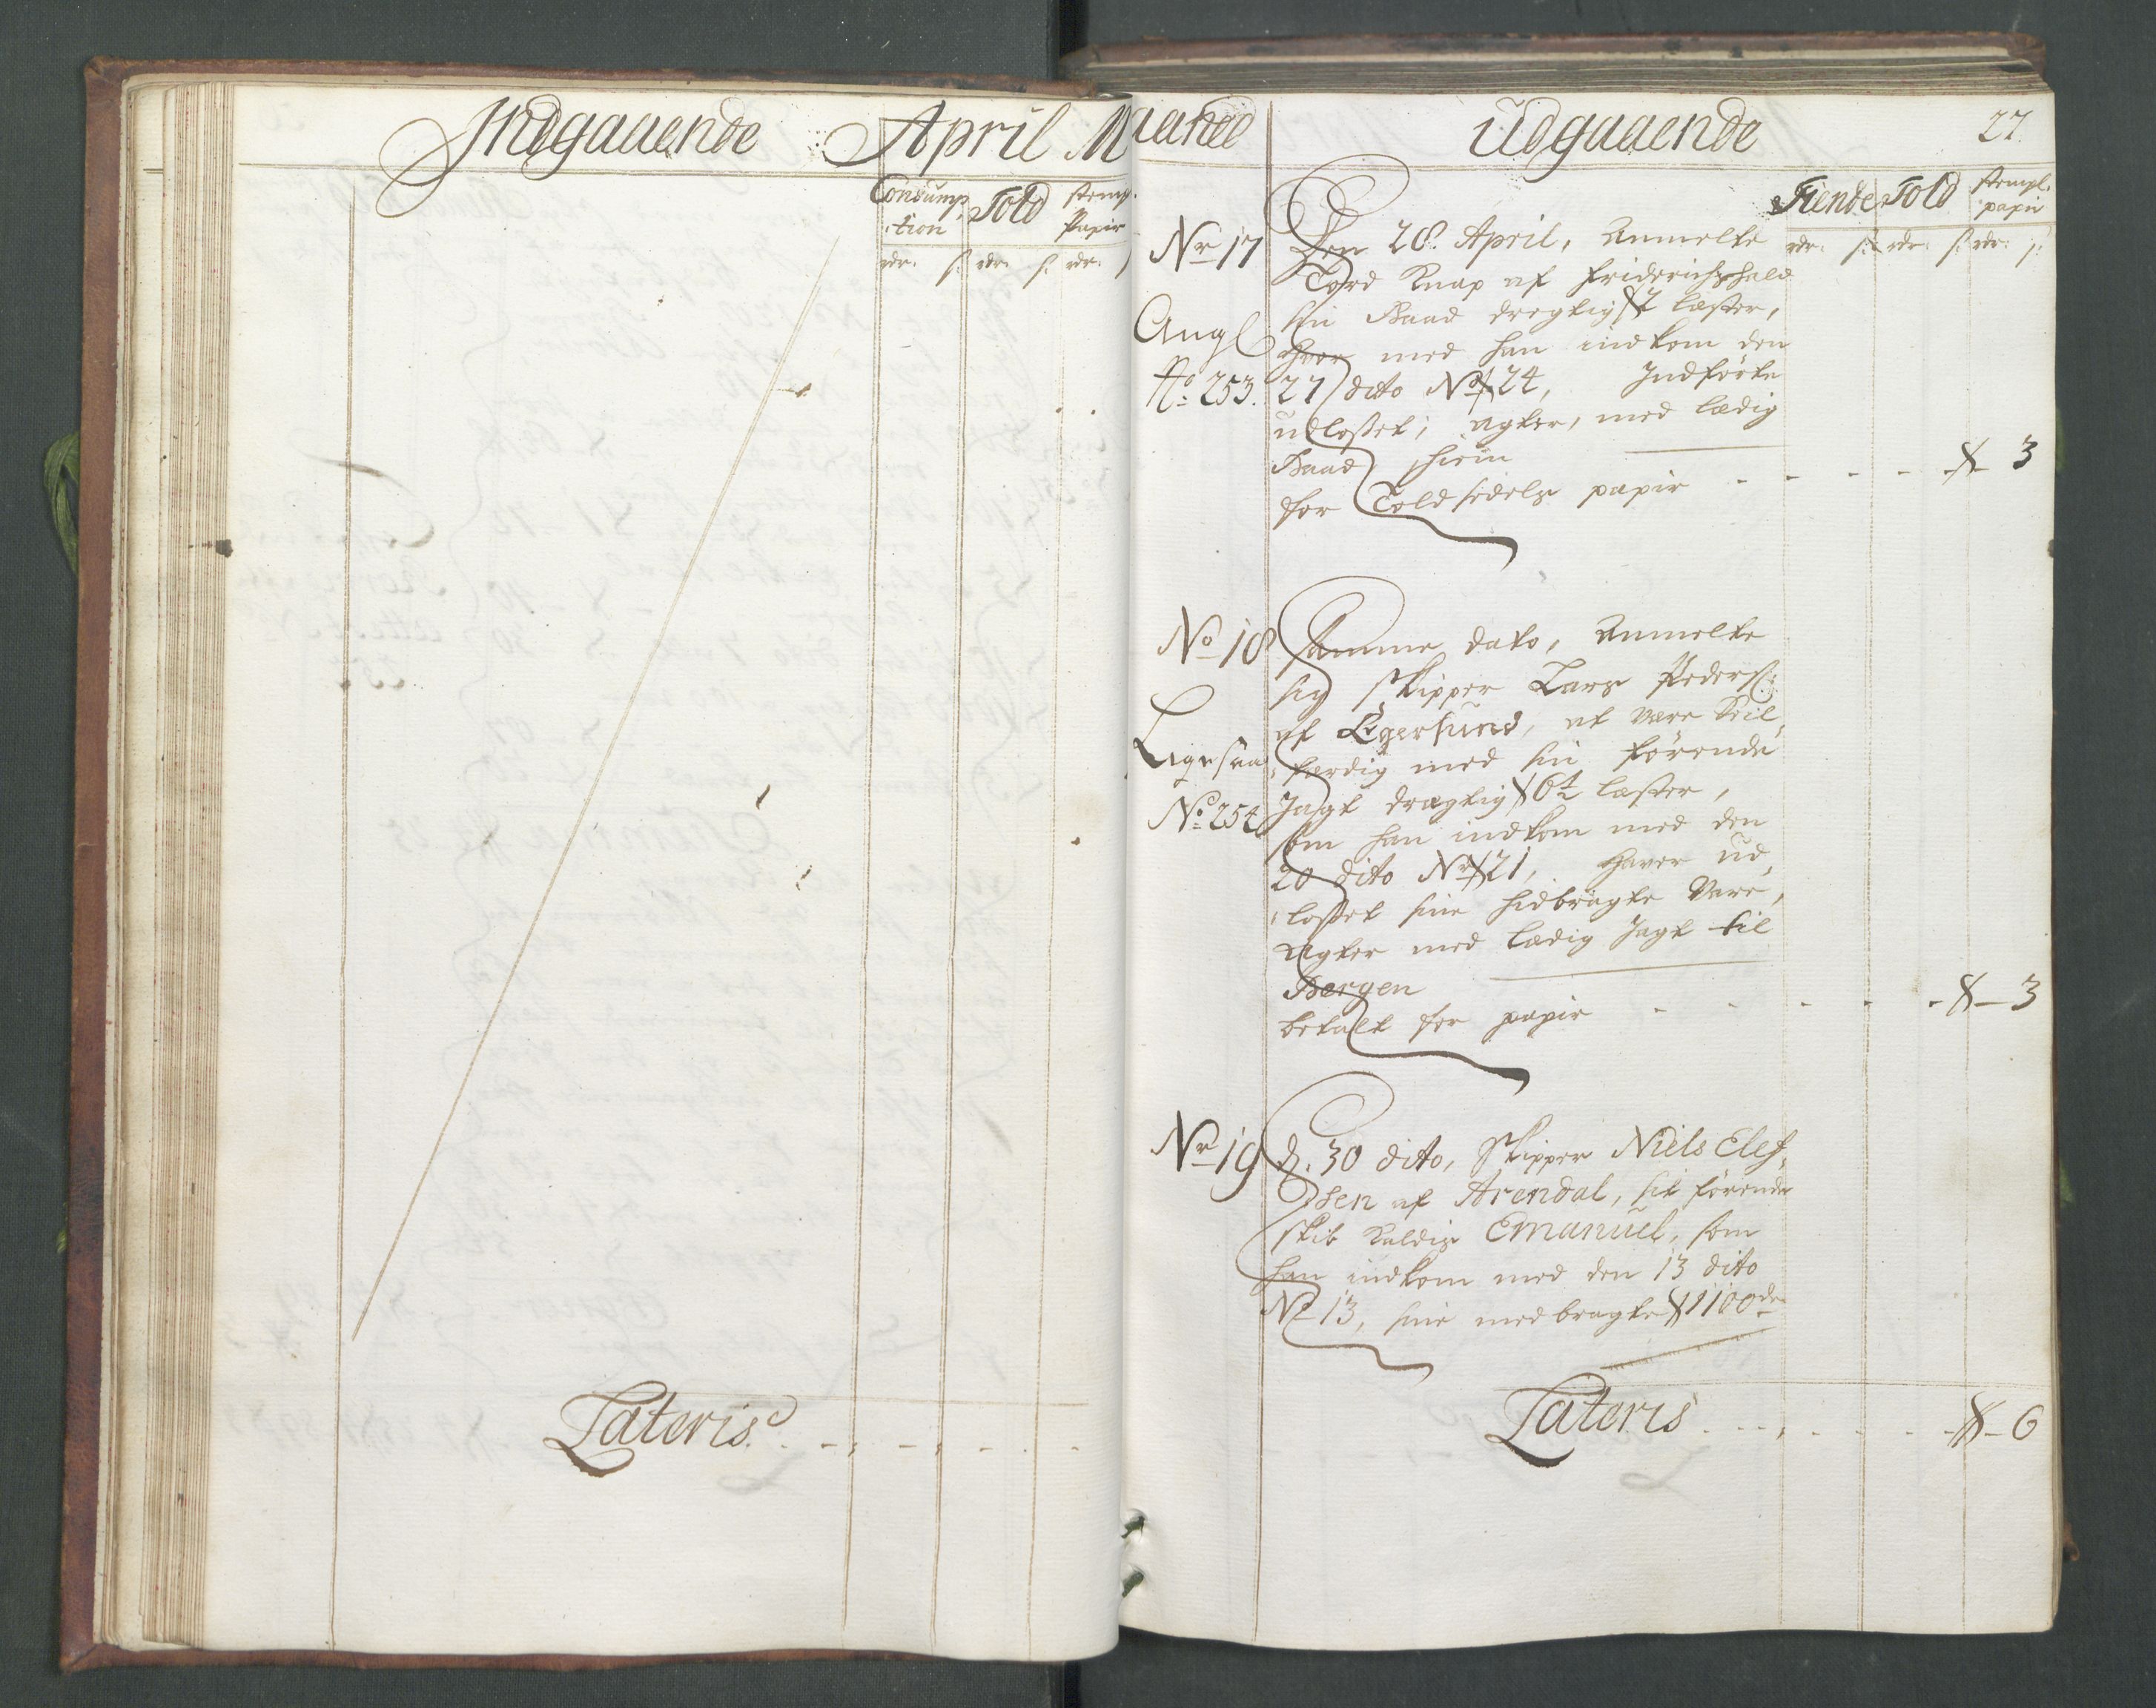 Indgaaende April Maaned
Consump
tion
Told
stempl.
Papir
rdr: s: rdr: s: rdr: s
Lateris
Udgaaende
27.
Tiende Told stempl.
papir
rdr: s: rdr: s: rdr: s:
Nr 17 Den 28. April, Anmelte
Tord Knap af Friderichshald
sin Baad dregtig § 2 læster,
Angl hvor med han indkom den
No 253. 27 dito No § 24, Indførte
udlosset; agter, med lædig
Baad hiem
for Told sedels papir - - - - § 3
No 18 Samme dato, Anmelte
sig Skipper Lars Peders:
af Egersund, at være Seil,
Ligesaa færdig med sin førende
No 254 Jagt dregtig § 6½ læster,
som han indkom med den
20 dito Nr § 21, haver ud,
losset sine hidbragte Vare,
Agter med lædig Jagt til
Bergen
betalt for papir - - - - - § - 3
Nr 19 d. 30 dito, Skipper Niels Elef,
sen af Arendal, sit førende
skib kaldis Emanuel, som
han indkom med den 13 dito
No 13, sine medbragte § 1100 de
Lateris - - - - § - 6